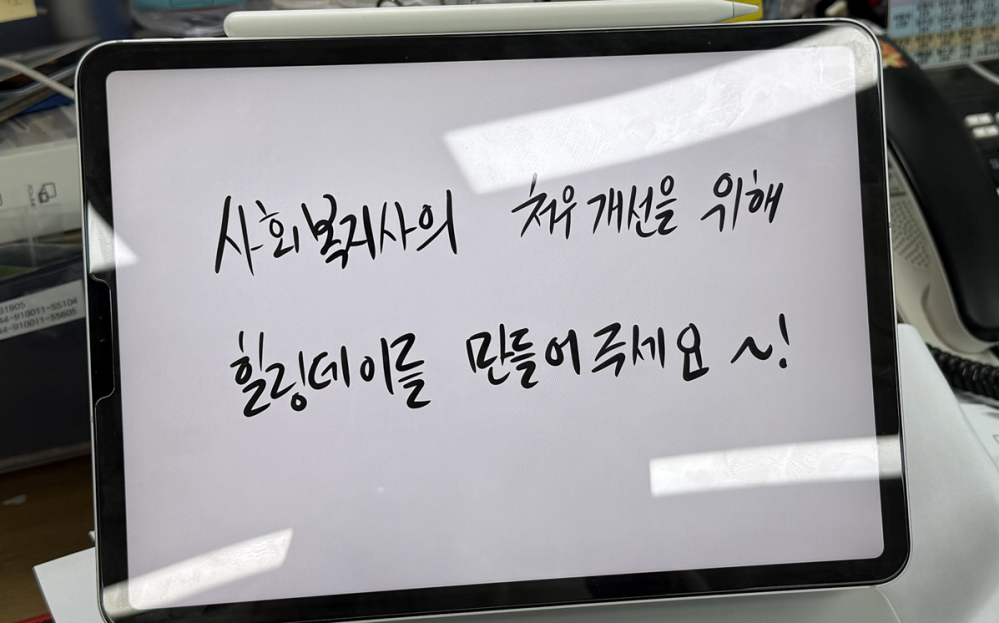 사회복지사의 처우개선을 위해
힐링데이를 만들어주세요~!
31905
44-910011-55104
44-910011-55605